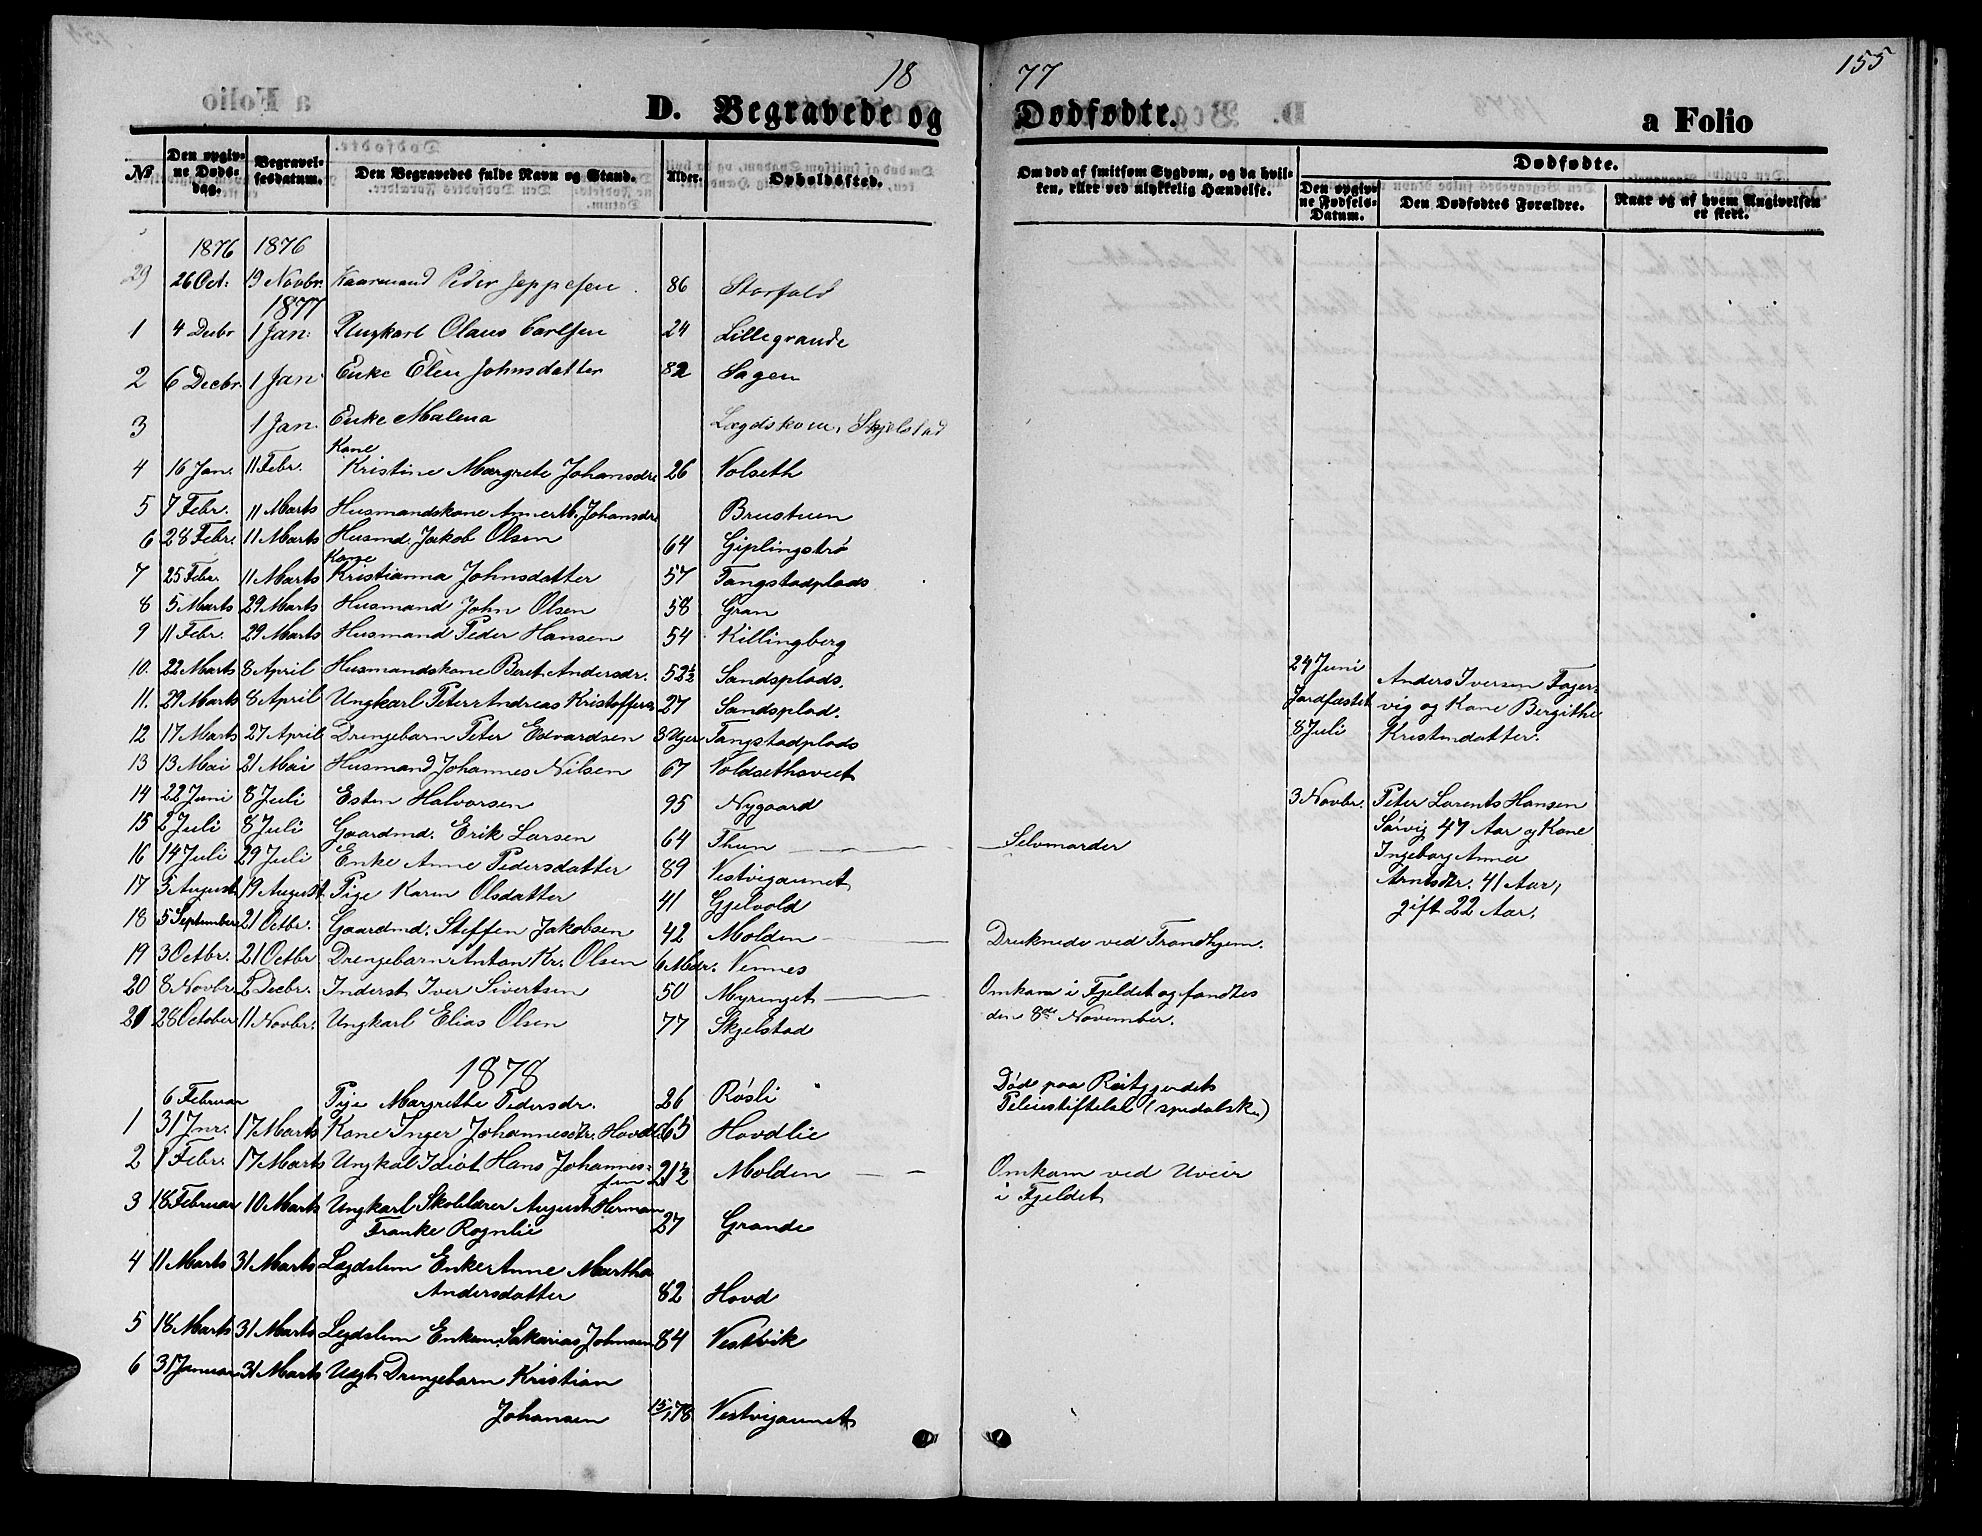 18 77 155
D. Begravede og Dødfødte. a Folio
№ Den opgivne Dødsdag. Begravelsesdatum. Den Begravedes fulde Navn og Stand. Alder. Opholdssted. Om død af smitsom Sygdom, og da hvilken, eller ved ulykkelig Hændelse. Dødfødte.
Den opgivne Fødsels-Datum. Den Dødfødtes Forældre. Naar og af hvem Angivelsen er skeet.
1876 1876
29 26 Oct. 19 Novbr. Kaarmand Peder Jeppesen 86 Storfold
1877
1 4 Decbr 1 Jan. Ungkarl Olaus Carlsen 24 Lillegrande
2 6 Decbr. 1 Jan. Enke Elen Johnsdatter 82 Sagen
3 1 Jan. Enke Malena Lægdskom, Skjelstad
4 16 Jan. 11 Febr. Kane Kristine Margrete Johansdr. 26 Volseth
5 7 Febr. 11 Marts Husmandskone Anne M. Johansdr Brustuen
6 28 Febr. 11 Marts Husmd. Jakob Olsen 64 Giplingstrø
7 25 Febr 11 Marts Kone Kristianna Johnsdatter 57 Tangstadplads
8 5 Marts 29 Marts Husmand John Olsen 58 Gran
9 11 Febr. 29 Marts Husmand Peder Hansen 54 Killingberg
10. 22 Marts 8 April Husmandskone Beret Andersdr. 52½ Sandsplads.
11. 29 Marts 8 April Ungkarl Peter Andreas Kristoffersen 27 Sandsplad.
12 17 Marts 27 April Drengebarn Peter Edvardsen 3 Uger Tangstadplads
24 Juni
Jordfæstet
8 Juli
Anders Iversen Fager-
vig og Kone Bergithe
Kristendatter.
13 13 Mai 21 Mai Husmand Johannes Nilsen 67 Voldsethsveet
14 22 Juni 8 Juli Esten Halvorsen 95 Nygaard
15 2 Juli 8 Juli Gaardmd. Erik Larsen 64 Thun Selvmorder
16 14 Juli 29 Juli Enke Anne Pedersdatter 89 Vestvigaunet
17 5 August 19 August Pige Karen Olsdatter 41 Gjelvold
3 Novbr. Peter Lorents Hansen
Sørvig 47 Aar og Kone
Ingeborg Anna
Arntsdtr. 41 Aar,
gift 22 Aar.
18 5 September 21 Octbr. Gaardmd. Steffen Jakobsen 42 Molden Druknede ved Trondhjem.
19 3 Octbr. 21 Octbr Drengebarn Anton Kr. Olsen 6 Mdr. Vennes
20 8 Novbr 2 Decbr. Inderst Iver Sivertsen 50 Myrenget Omkom i Fjeldet og fandtes
den 8de November.
21 28 October 11 Novbr. Ungkarl Elias Olsen 77 Skjelstad
1878
6 Februar Pige Margrethe Pedersdr. 26 Røsli Død paa Reitgjerdets
Pleiestiftelse (spedalsk)
1 31 Jnr. 17 Marts Kone Inger Johannesdtr. Hovdlie 65 Hovdlie
2 1 Febr. 17 Marts Ungkal Idiot Hans Johannes-
sen 21½ Molden Omkom ved Uveir
i Fjeldet
3 18 Februar 10 Marts Ungkarl Skolelærer August Herman
Franke Rognlie 27 Grande
4 11 Marts 31 Marts Lægdslem Enke Anne Martha
Andersdatter 82 Hovd
5 18 Marts 31 Marts Legdslem Enkem. Sakarias Johnsen 84 Vestvik
6 31 Januar 31 Marts Uægt. Drengebarn Kristian
Johansen 15/1 78 Vestvigaunet